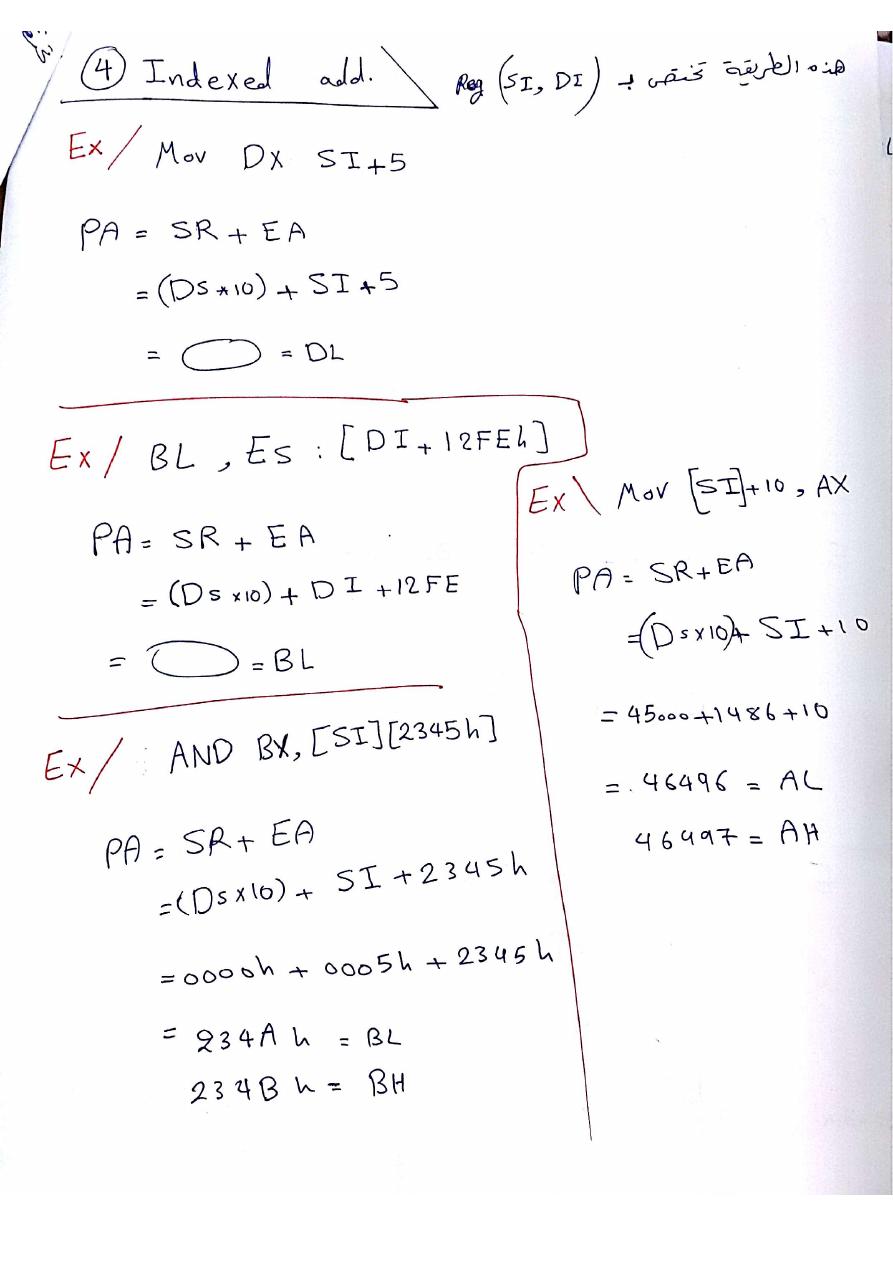 ④ Indexed add.
هذه الطريقة تختص بـ Reg (SI, DI)
Ex/ Mov DX SI+5
PA = SR + EA
= (DS*10) + SI+5
= = DL
Ex/ BL , Es : [DI+12FEh]
PA = SR + EA
= (Ds x10) + DI +12FE
= = BL
Ex/ AND BX, [SI][2345h]
PA = SR + EA
= (Ds x10) + SI + 2345h
= 0000h + 0005h + 2345h
= 234A h = BL
234B h = BH
Ex\ Mov [SI]+10 , AX
PA = SR+EA
= (Ds x10)+ SI +10
= 45000+1486+10
= . 46496 = AL
46497 = AH